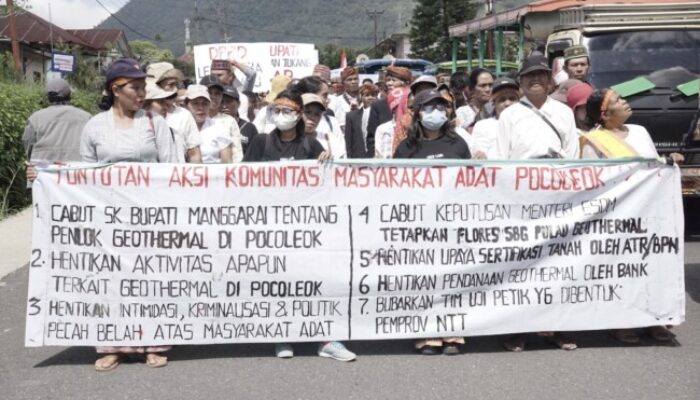 DPRD BUPATI
TUNTUTAN AKSI KOMUNITAS MASYARAKAT ADAT POCOLEOK
1. CABUT SK BUPATI MANGGARAI TENTANG
PENLOK GEOTHERMAL DI POCOLEOK
2. HENTIKAN AKTIVITAS APAPUN
TERKAIT GEOTHERMAL DI POCOLEOK
3 HENTIKAN INTIMIDASI, KRIMINALISASI & POLITIK
PECAH BELAH ATAS MASYARAKAT ADAT
4 CABUT KEPUTUSAN MENTERI ESDM
TETAPKAN FLORES SBG PULAU GEOTHERMAL
5 HENTIKAN UPAYA SERTIFIKASI TANAH OLEH ATR/BPN
6 HENTIKAN PENDANAAN GEOTHERMAL OLEH BANK
7. BUBARKAN TIM UJI PETIK YG DIBENTUK:
PEMPROV NTT